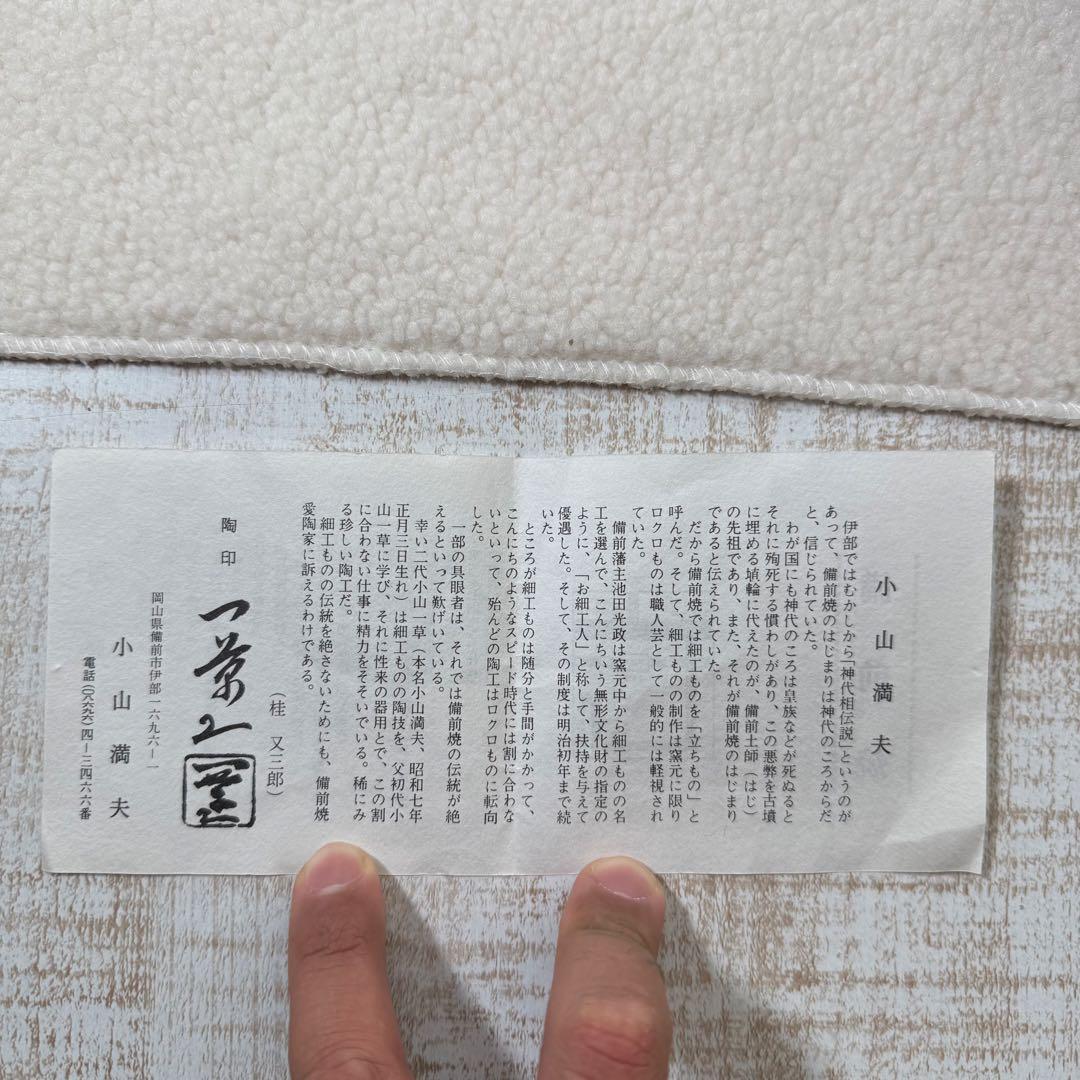 小山満夫
伊部ではむかしから「神代相伝説」というのが
あって、備前焼のはじまりは神代のころからだ
と、信じられていた。
わが国にも神代のころは皇族などが死ぬると
それに殉死する慣わしがあり、この悪弊を古墳
に埋める埴輪に代えたのが、備前土師（はじ）
の先祖であり、また、それが備前焼のはじまり
であると伝えられていた。
だから備前焼では細工ものを「立ちもの」と
呼んだ。そして、細工ものの制作は窯元に限り
ロクロものは職人芸として一般的には軽視され
ていた。
備前藩主池田光政は窯元中から細工ものの名
工を選んで、こんにちいう無形文化財の指定の
ように、「お細工人」と称して、扶持を与えて
優遇した。そして、その制度は明治初年まで続
いた。
ところが細工ものは随分と手間がかかって、
こんにちのようなスピード時代には割に合わな
いといって、殆んどの陶工はロクロものに転向
した。
一部の具眼者は、それでは備前焼の伝統が絶
えるといって歎げいている。
幸い二代小山一草（本名小山満夫、昭和七年
正月三日生れ）は細工ものの陶技を、父初代小
山一草に学び、それに性来の器用とで、この割
に合わない仕事に精力をそそいでいる。稀にみ
る珍しい陶工だ。
細工ものの伝統を絶さないためにも、備前焼
愛陶家に訴えるわけである。
（桂 又三郎）
陶印
岡山県備前市伊部一六九六―一
小山満夫
電話（〇八六九六）四―三四六六番